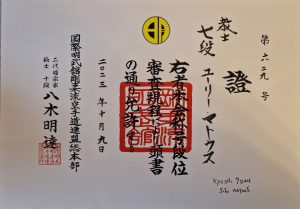 第六二九号
證
教士
七段 ユーリー・マトウス
右者本会所定段位
審査規程に依り頭書
の通り允許する
二〇二三年十月九日
国際明武舘剛柔流空手道連盟総本部
二代目宗家
範士 十段 八木明達
KYOSHI 7DAN